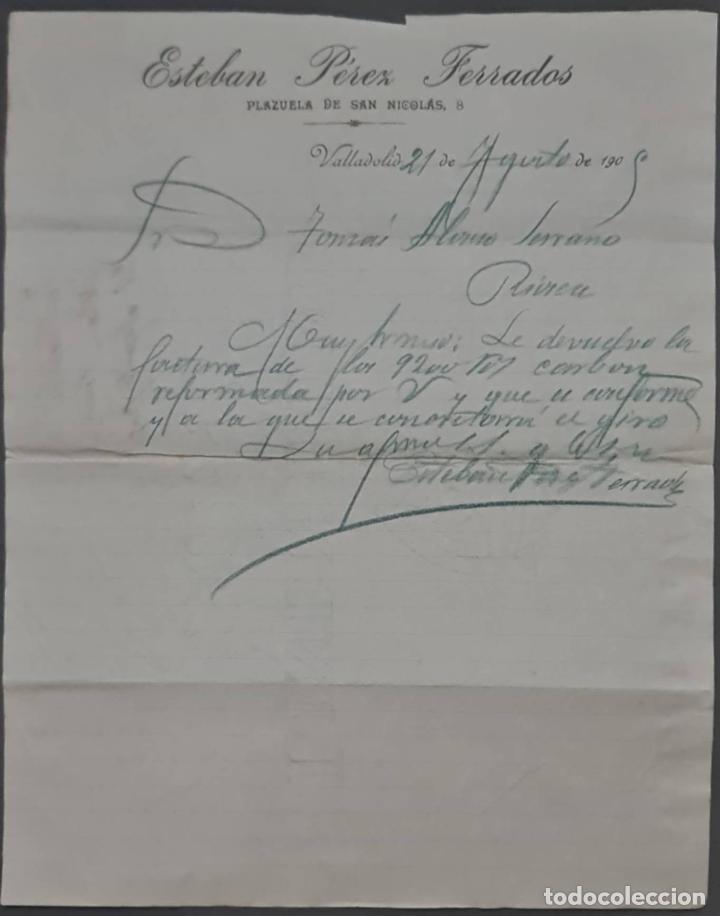 Esteban Pérez Ferrados
PLAZUELA DE SAN NICOLÁS, 8
Valladolid 21 de Agosto de 1905
Sr D Tomás Alonso Serrano
Rioseco
Muy Sr mio: Le devuelvo la
factura de los 9200 Kos carbon
reformada por V y que es conforme
y a la que se concretará el giro
Su afmo S. S. q b s m
Esteban Perez Ferrados
todocoleccion.net